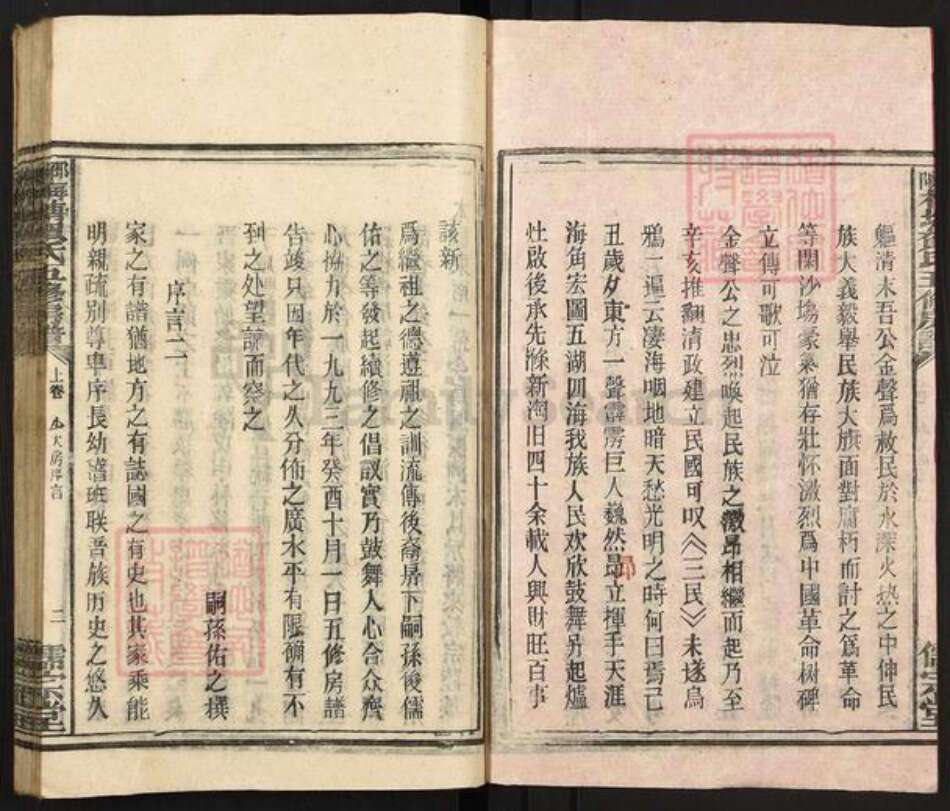 軀清末吾公金聲爲赦民於水深火热之中伸民
族大義毅舉民族大旗面對腐朽而討之爲革命
等閑沙塲豪氣猶存壯怀激烈爲中國革命树碑
立傳可歌可泣
金聲公之忠烈喚起民族之激昂相繼而起乃至
辛亥推翻清政建立民國可叹《三民》未遂烏
鴉一遍云凄海咽地暗天愁光明之時何曰焉己
丑歲夕東方一聲霹雳巨人巍然昂立揮手天涯
海角宏圖五湖四海我族人民欢欣鼓舞另起爐
灶啟後承先除新淘旧四十余載人興財旺百事
該新
爲繼祖之德遵祖之訓流傳後裔房下嗣孫後儒
佑之等發起續修之倡議實乃鼓舞人心合众齊
心恊力於一九九三年癸酉十月一日五修房譜
告竣只因年代之久分佈之廣水平有限确有不
到之处望諒而察之
嗣孫佑之撰
序言二
家之有譜猶地方之有誌國之有史也其家乘能
明親疏别尊卑序長幼諳班联吾族历史之悠久
氏五修房譜
上卷
大房序言
二
儒宗堂